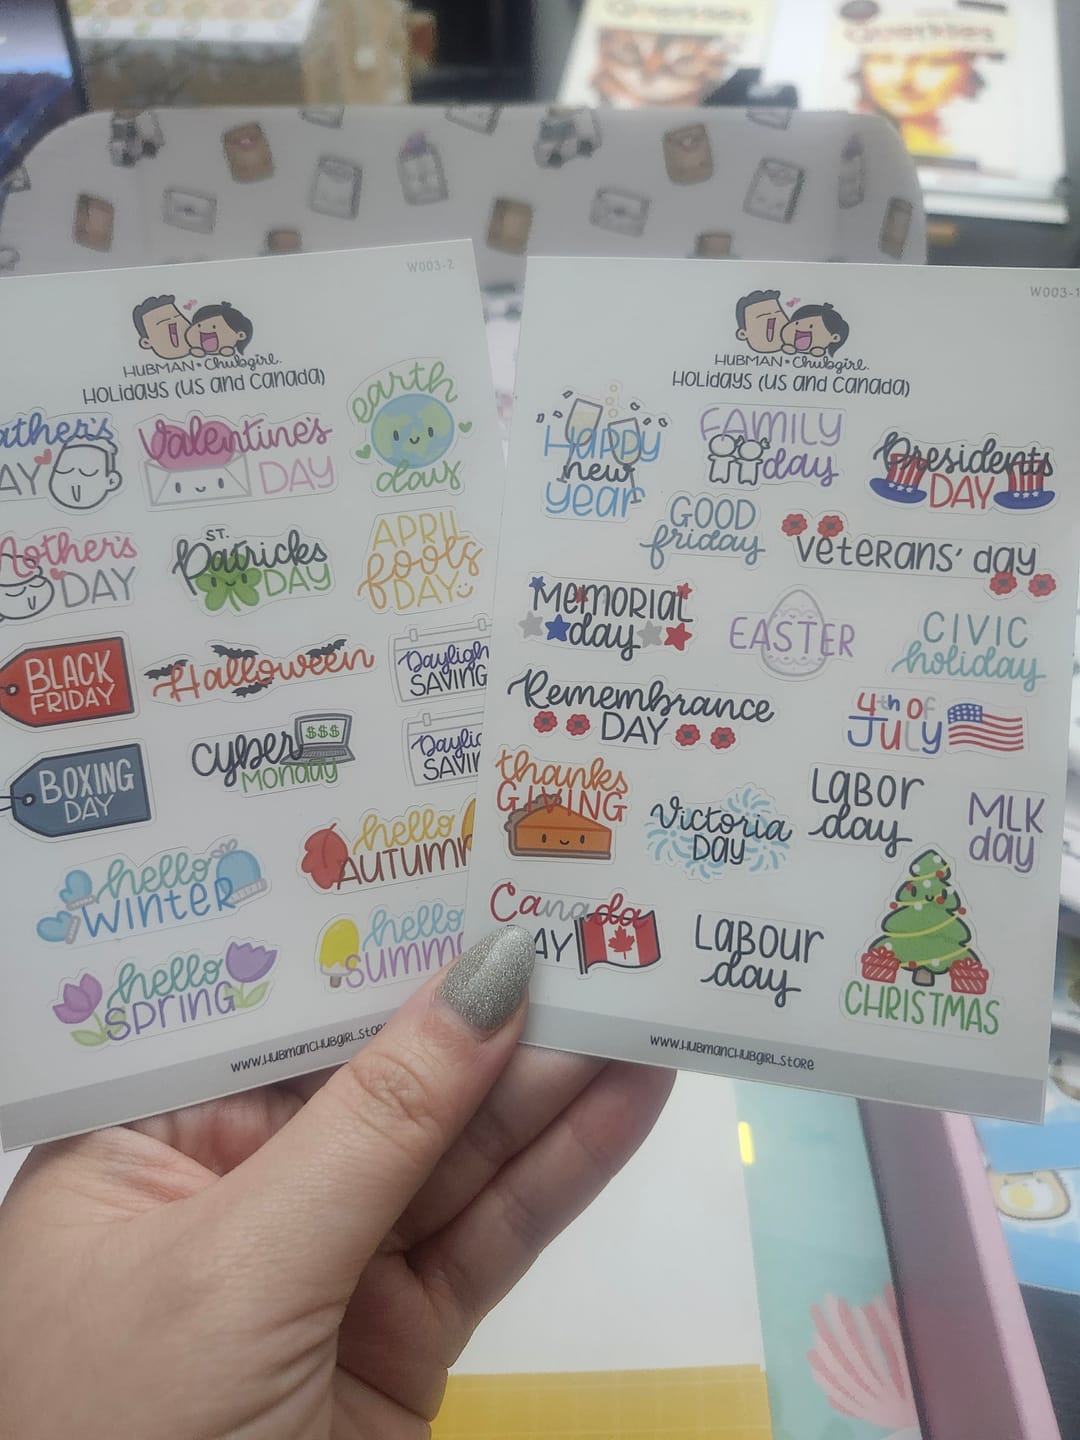 W003-2
HUBMAN • Chubgirl.
HOLidays (US and Canada)
DAY
Valentine's
DAY
earth
days
DAY
ST.
Patricks
DAY
APRIL
fools
DAY
BLACK
FRIDAY
Halloween
SAVING
BOXING
DAY
cyber
$$$
Monday
hello
WINTER
hello
hello
SPRING
hello
www.HUBMANCHUBGIRL.STORE
W003-1
HUBMAN • Chubgirl.
HOLidays (US and Canada)
Happy
new
year
FAMILY
day
Presidents
DAY
GOOD
friday
Veterans' day
MEMORIAL
day
EASTER
CIVIC
holiday
Remembrance
DAY
4th OF
JULY
thanks
GIVING
Victoria
DAY
LABOR
day
MLK
day
Canada
LABOUR
day
CHRISTMAS
www.HUBMANCHUBGIRL.STORE